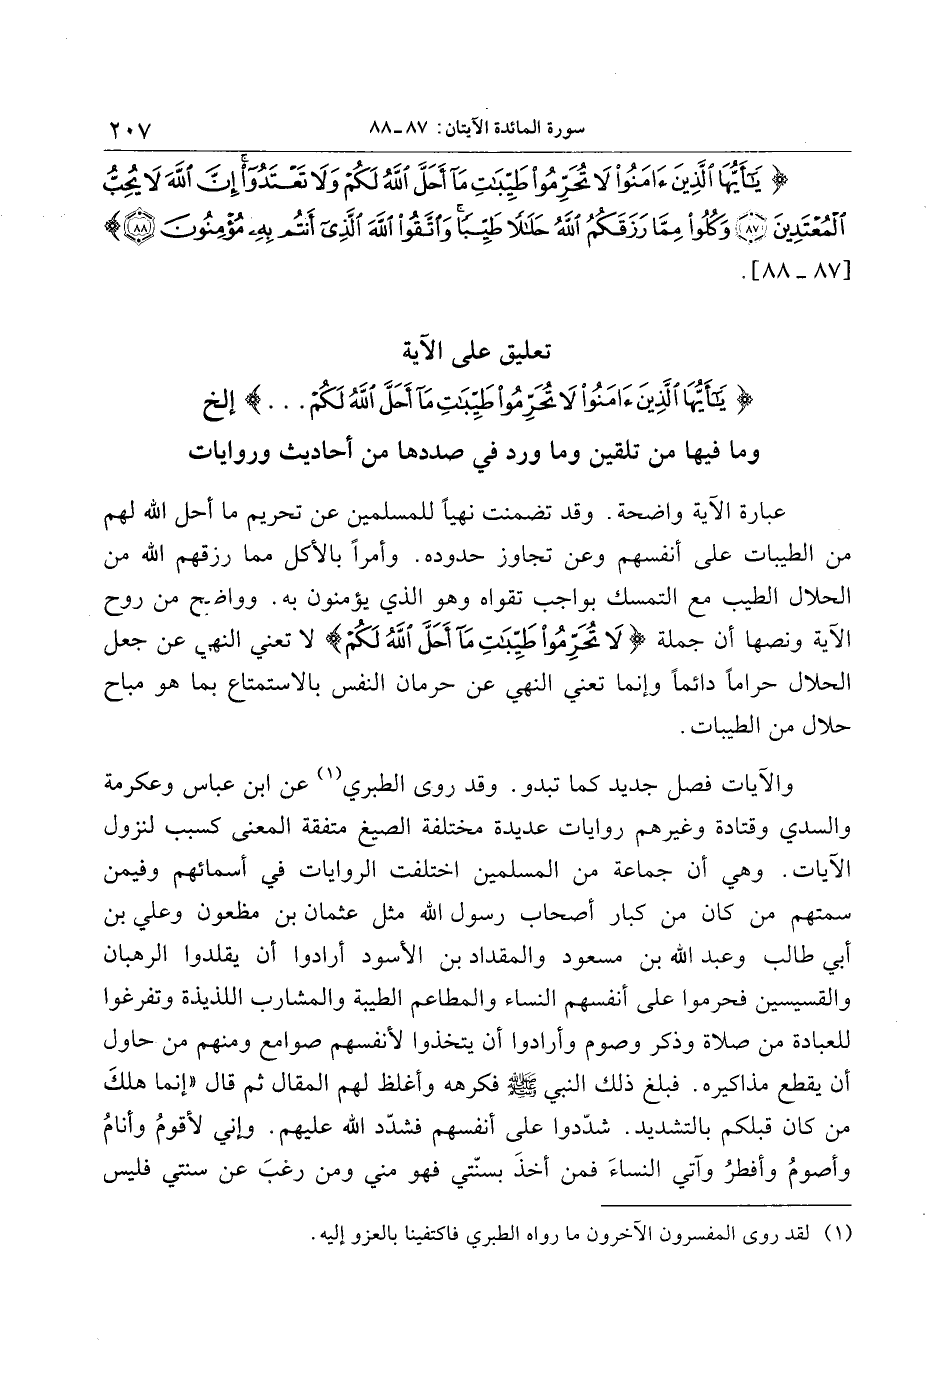 سورة المائدة الآيتان: ٨٧ـ٨٨ ٢٠٧
﴿ يَٰٓأَيُّهَا ٱلَّذِينَ ءَامَنُوا۟ لَا تُحَرِّمُوا۟ طَيِّبَٰتِ مَآ أَحَلَّ ٱللَّهُ لَكُمْ وَلَا تَعْتَدُوٓا۟ۚ إِنَّ ٱللَّهَ لَا يُحِبُّ
ٱلْمُعْتَدِينَ ۝٨٧ وَكُلُوا۟ مِمَّا رَزَقَكُمُ ٱللَّهُ حَلَٰلًا طَيِّبًاۚ وَٱتَّقُوا۟ ٱللَّهَ ٱلَّذِىٓ أَنتُم بِهِۦ مُؤْمِنُونَ ۝٨٨ ﴾
[٨٧ ـ ٨٨].
تعليق على الآية
﴿ يَٰٓأَيُّهَا ٱلَّذِينَ ءَامَنُوا۟ لَا تُحَرِّمُوا۟ طَيِّبَٰتِ مَآ أَحَلَّ ٱللَّهُ لَكُمْ . . . ﴾ إلخ
وما فيها من تلقين وما ورد في صددها من أحاديث وروايات
عبارة الآية واضحة. وقد تضمنت نهياً للمسلمين عن تحريم ما أحل الله لهم
من الطيبات على أنفسهم وعن تجاوز حدوده. وأمراً بالأكل مما رزقهم الله من
الحلال الطيب مع التمسك بواجب تقواه وهو الذي يؤمنون به. وواضح من روح
الآية ونصها أن جملة ﴿ لَا تُحَرِّمُوا۟ طَيِّبَٰتِ مَآ أَحَلَّ ٱللَّهُ لَكُمْ ﴾ لا تعني النهي عن جعل
الحلال حراماً دائماً وإنما تعني النهي عن حرمان النفس بالاستمتاع بما هو مباح
حلال من الطيبات.
والآيات فصل جديد كما تبدو. وقد روى الطبري(١) عن ابن عباس وعكرمة
والسدي وقتادة وغيرهم روايات عديدة مختلفة الصيغ متفقة المعنى كسبب لنزول
الآيات. وهي أن جماعة من المسلمين اختلفت الروايات في أسمائهم وفيمن
سمتهم من كان من كبار أصحاب رسول الله مثل عثمان بن مظعون وعلي بن
أبي طالب وعبد الله بن مسعود والمقداد بن الأسود أرادوا أن يقلدوا الرهبان
والقسيسين فحرموا على أنفسهم النساء والمطاعم الطيبة والمشارب اللذيذة وتفرغوا
للعبادة من صلاة وذكر وصوم وأرادوا أن يتخذوا لأنفسهم صوامع ومنهم من حاول
أن يقطع مذاكيره. فبلغ ذلك النبي ﷺ فكرهه وأغلظ لهم المقال ثم قال «إنما هلكَ
من كان قبلكم بالتشديد. شدّدوا على أنفسهم فشدّد الله عليهم. وإني لأقومُ وأنامُ
وأصومُ وأفطرُ وآتي النساءَ فمن أخذَ بسنّتي فهو مني ومن رغبَ عن سنتي فليس
(١) لقد روى المفسرون الآخرون ما رواه الطبري فاكتفينا بالعزو إليه.